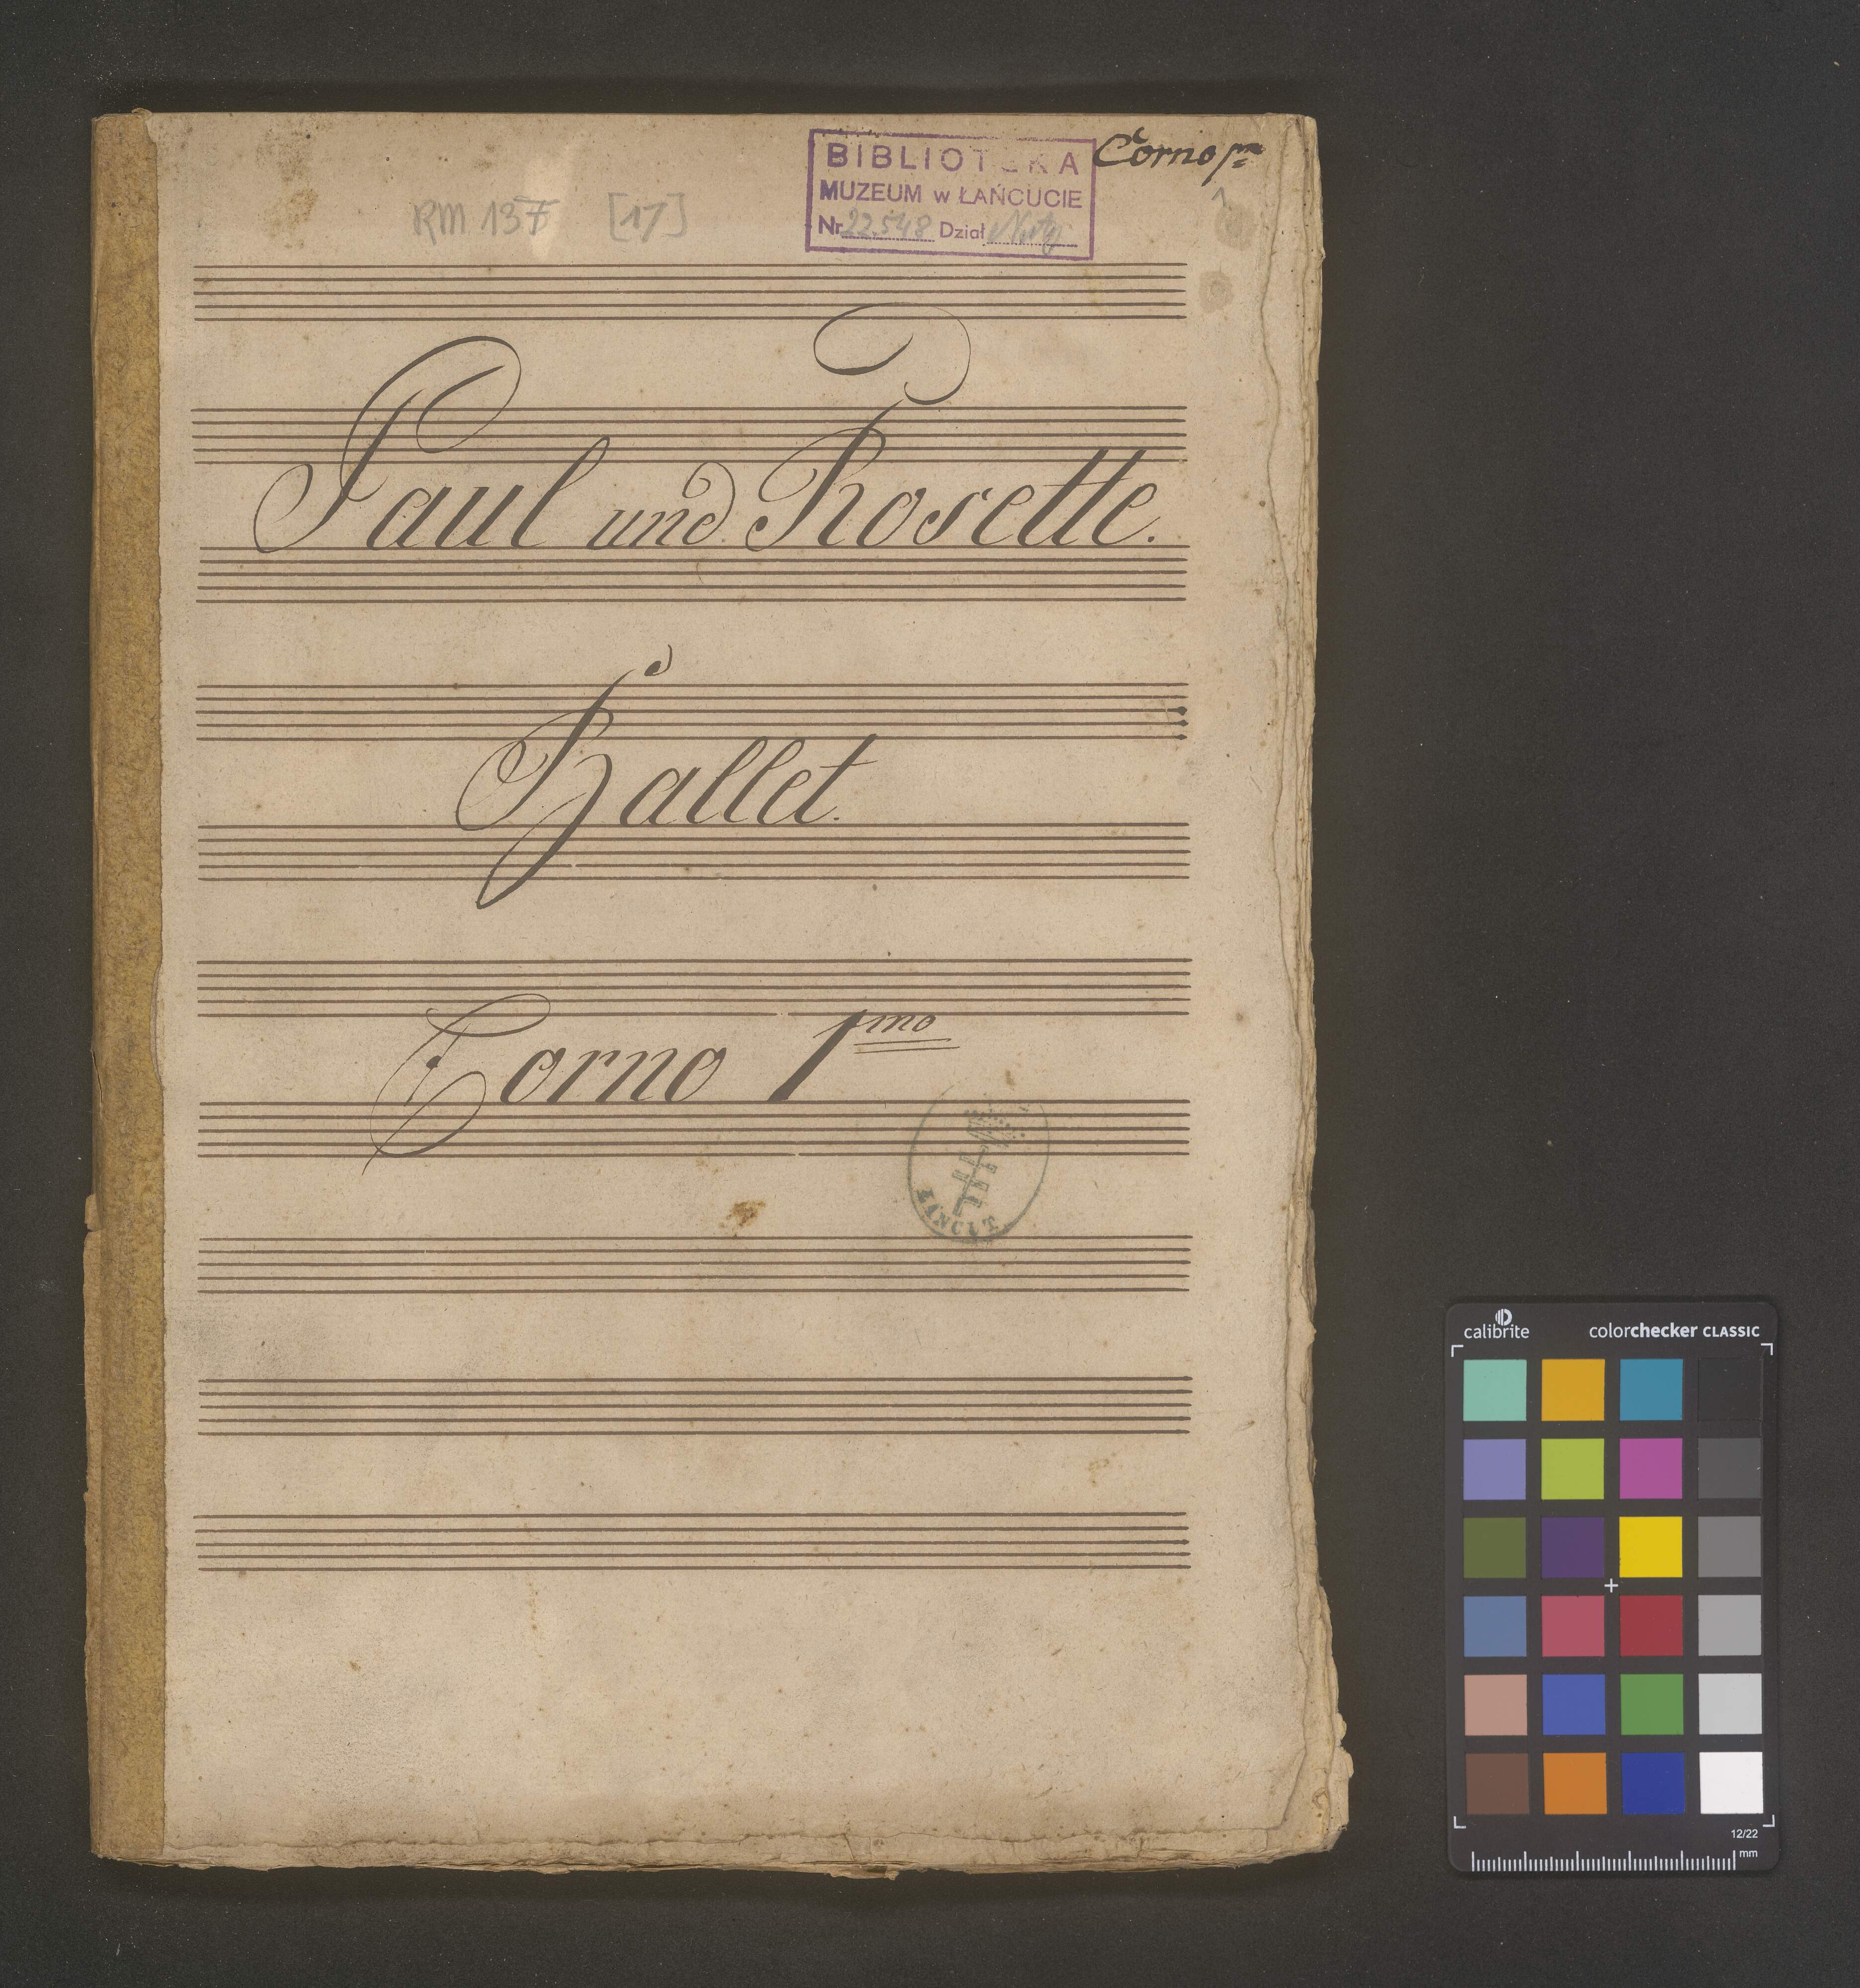 BIBLIOTEKA
MUZEUM w ŁAŃCUCIE
Nr 22.548 Dział Nuty
Corno pmo
1
RM 137 [17]
Paul und Rosette.
Ballet.
Corno 1mo
ŁAŃCUT
calibrite colorchecker CLASSIC
12/22
mm